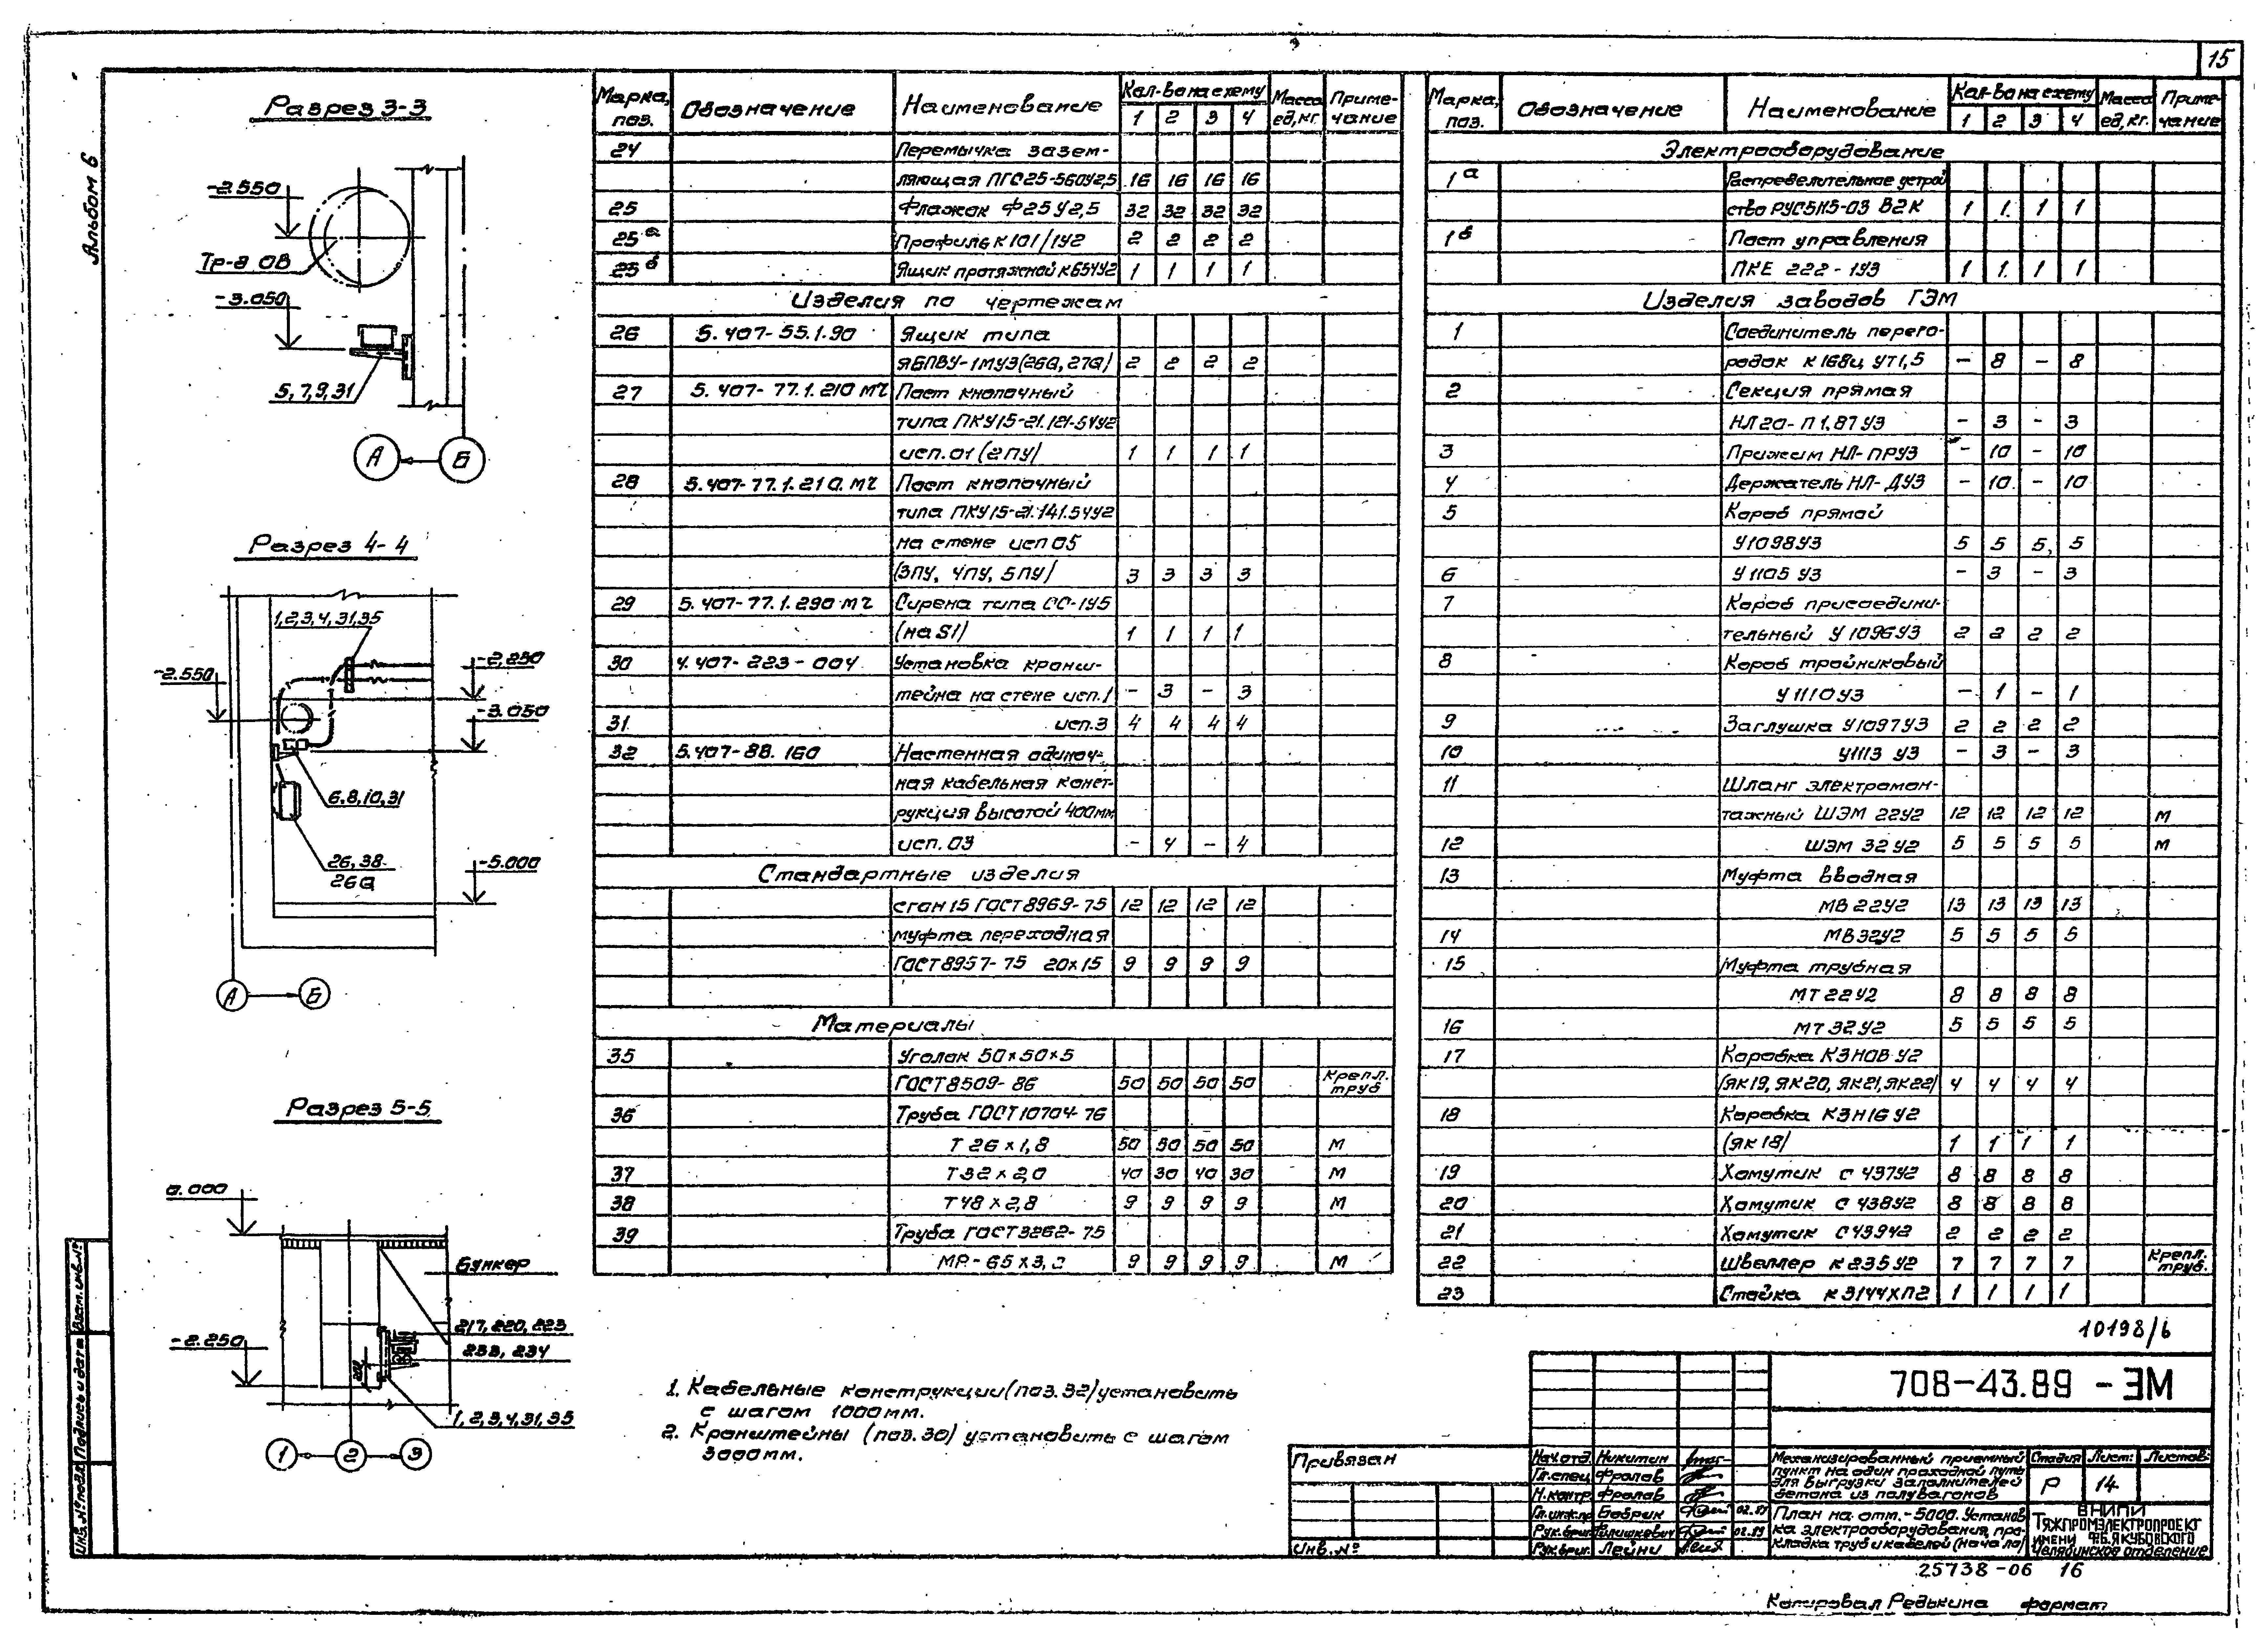 15
Альбом 6
Разрез 3-3
-2.550
Тр-д ОВ
-3.050
5,7,9,31
А Б
Разрез 4-4
1,2,3,4,31,35
-2.550
-2,250
-3.050
6,8,10,31
26,38
26а
-5.000
А Б
Разрез 5-5
0.000
Бункер
-2.250
217, 220, 223
233, 234
1,2,3,4,31,35
1 2 3
Марка, поз. Обозначение Наименование Кол-во на схему Масса ед,кг. Примечание
1 2 3 4
24 Перемычка зазем-
ляющая ПГС25-560У2,5 16 16 16 16
25 Флажок Ф25У2,5 32 32 32 32
25а Профиль К101/1У2 2 2 2 2
25б Ящик протяжной К654У2 1 1 1 1
Изделия по чертежам
26 5.407-55.1.90 Ящик типа
ЯБПВУ-1МУ3(26а,27а) 2 2 2 2
27 5.407-77.1.210 МЧ Пост кнопочный
типа ПКУ15-21.121-54У2
исп.01 (2ПУ) 1 1 1 1
28 5.407-77.1.210.МЧ Пост кнопочный
типа ПКУ15-21.141.54У2
на стене исп 05
(3ПУ, 4ПУ, 5ПУ) 3 3 3 3
29 5.407-77.1.290 МЧ Сирена типа СС-1У5
(на S1) 1 1 1 1
30 4.407-223-004 Установка кронш-
тейна на стене исп.1 - 3 - 3
31 исп.3 4 4 4 4
32 5.407-88.160 Настенная одиноч-
ная кабельная конст-
рукция высотой 400мм
исп.03 - 4 - 4
Стандартные изделия
сгон 15 ГОСТ8969-75 12 12 12 12
муфта переходная
ГОСТ8957-75 20х15 9 9 9 9
Материалы
35 Уголок 50х50х5
ГОСТ8509-86 50 50 50 50 Крепл. труб
36 Труба ГОСТ10704-76
Т 26 х 1,8 50 50 50 50 М
37 Т32 х 2,0 40 30 40 30 М
38 Т48 х 2,8 9 9 9 9 М
39 Труба ГОСТ3262-75
МР-65х3,2 9 9 9 9 М
Марка, поз. Обозначение Наименование Кол-во на схему Масса ед,кг. Примечание
1 2 3 4
Электрооборудование
1а Распределительное устрой
ство РУС5115-03 В2К 1 1 1 1
1б Пост управления
ПКЕ 222-1У3 1 1 1 1
Изделия заводов ГЭМ
1 Соединитель перего-
родок К168ц УТ1,5 - 8 - 8
2 Секция прямая
НЛ20-П1,87У3 - 3 - 3
3 Прижим НЛ-ПРУ3 - 10 - 10
4 Держатель НЛ-ДУ3 - 10 - 10
5 Короб прямой
У1098У3 5 5 5 5
6 У1105 У3 - 3 - 3
7 Короб присоедини-
тельный У1096У3 2 2 2 2
8 Короб тройниковый
У1110У3 - 1 - 1
9 Заглушка У1097У3 2 2 2 2
10 У1113 У3 - 3 - 3
11 Шланг электромон-
тажный ШЭМ 22У2 12 12 12 12 М
12 ШЭМ 32У2 5 5 5 5 М
13 Муфта вводная
МВ 22У2 13 13 13 13
14 МВ32У2 5 5 5 5
15 Муфта трубная
МТ22У2 8 8 8 8
16 МТ32У2 5 5 5 5
17 Коробка КЗНОВ У2
(ЯК19, ЯК20, ЯК21, ЯК22) 4 4 4 4
18 Коробка КЗН16 У2
(ЯК18) 1 1 1 1
19 Хомутик С437У2 8 8 8 8
20 Хомутик С438У2 8 8 8 8
21 Хомутик С439У2 2 2 2 2
22 Швеллер К235У2 7 7 7 7 Крепл. труб.
23 Стойка К3144ХЛ2 1 1 1 1
1. Кабельные конструкции (поз.32) установить
с шагом 1000мм.
2. Кронштейны (поз.30) установить с шагом
3000мм.
10198/6
708-43.89 -ЭМ
Привязан
Инв.№
Нач.отд. Никитин
Гл.спец. Фролов
Н.контр. Фролов
Гл.инж.пр. Бобрик 02.89
Рук.бриг. Филишкевич 02.89
Рук.бриг. Лейни
Механизированный приемный
пункт на один проходной путь
для выгрузки заполнителей
бетона из полувагонов
Стадия Лист: Листов:
Р 14
План на отм.-5000. Установ
ка электрооборудования, про-
кладка труб и кабелей (начало)
ВНИПИ
ТЯЖПРОМЭЛЕКТРОПРОЕКТ
ИМЕНИ Ф.Б.ЯКУБОВСКОГО
Челябинское отделение
25738-06 16
Копировал Редькина формат
Взам.инв.№
Подпись и дата
Инв.№ подл.